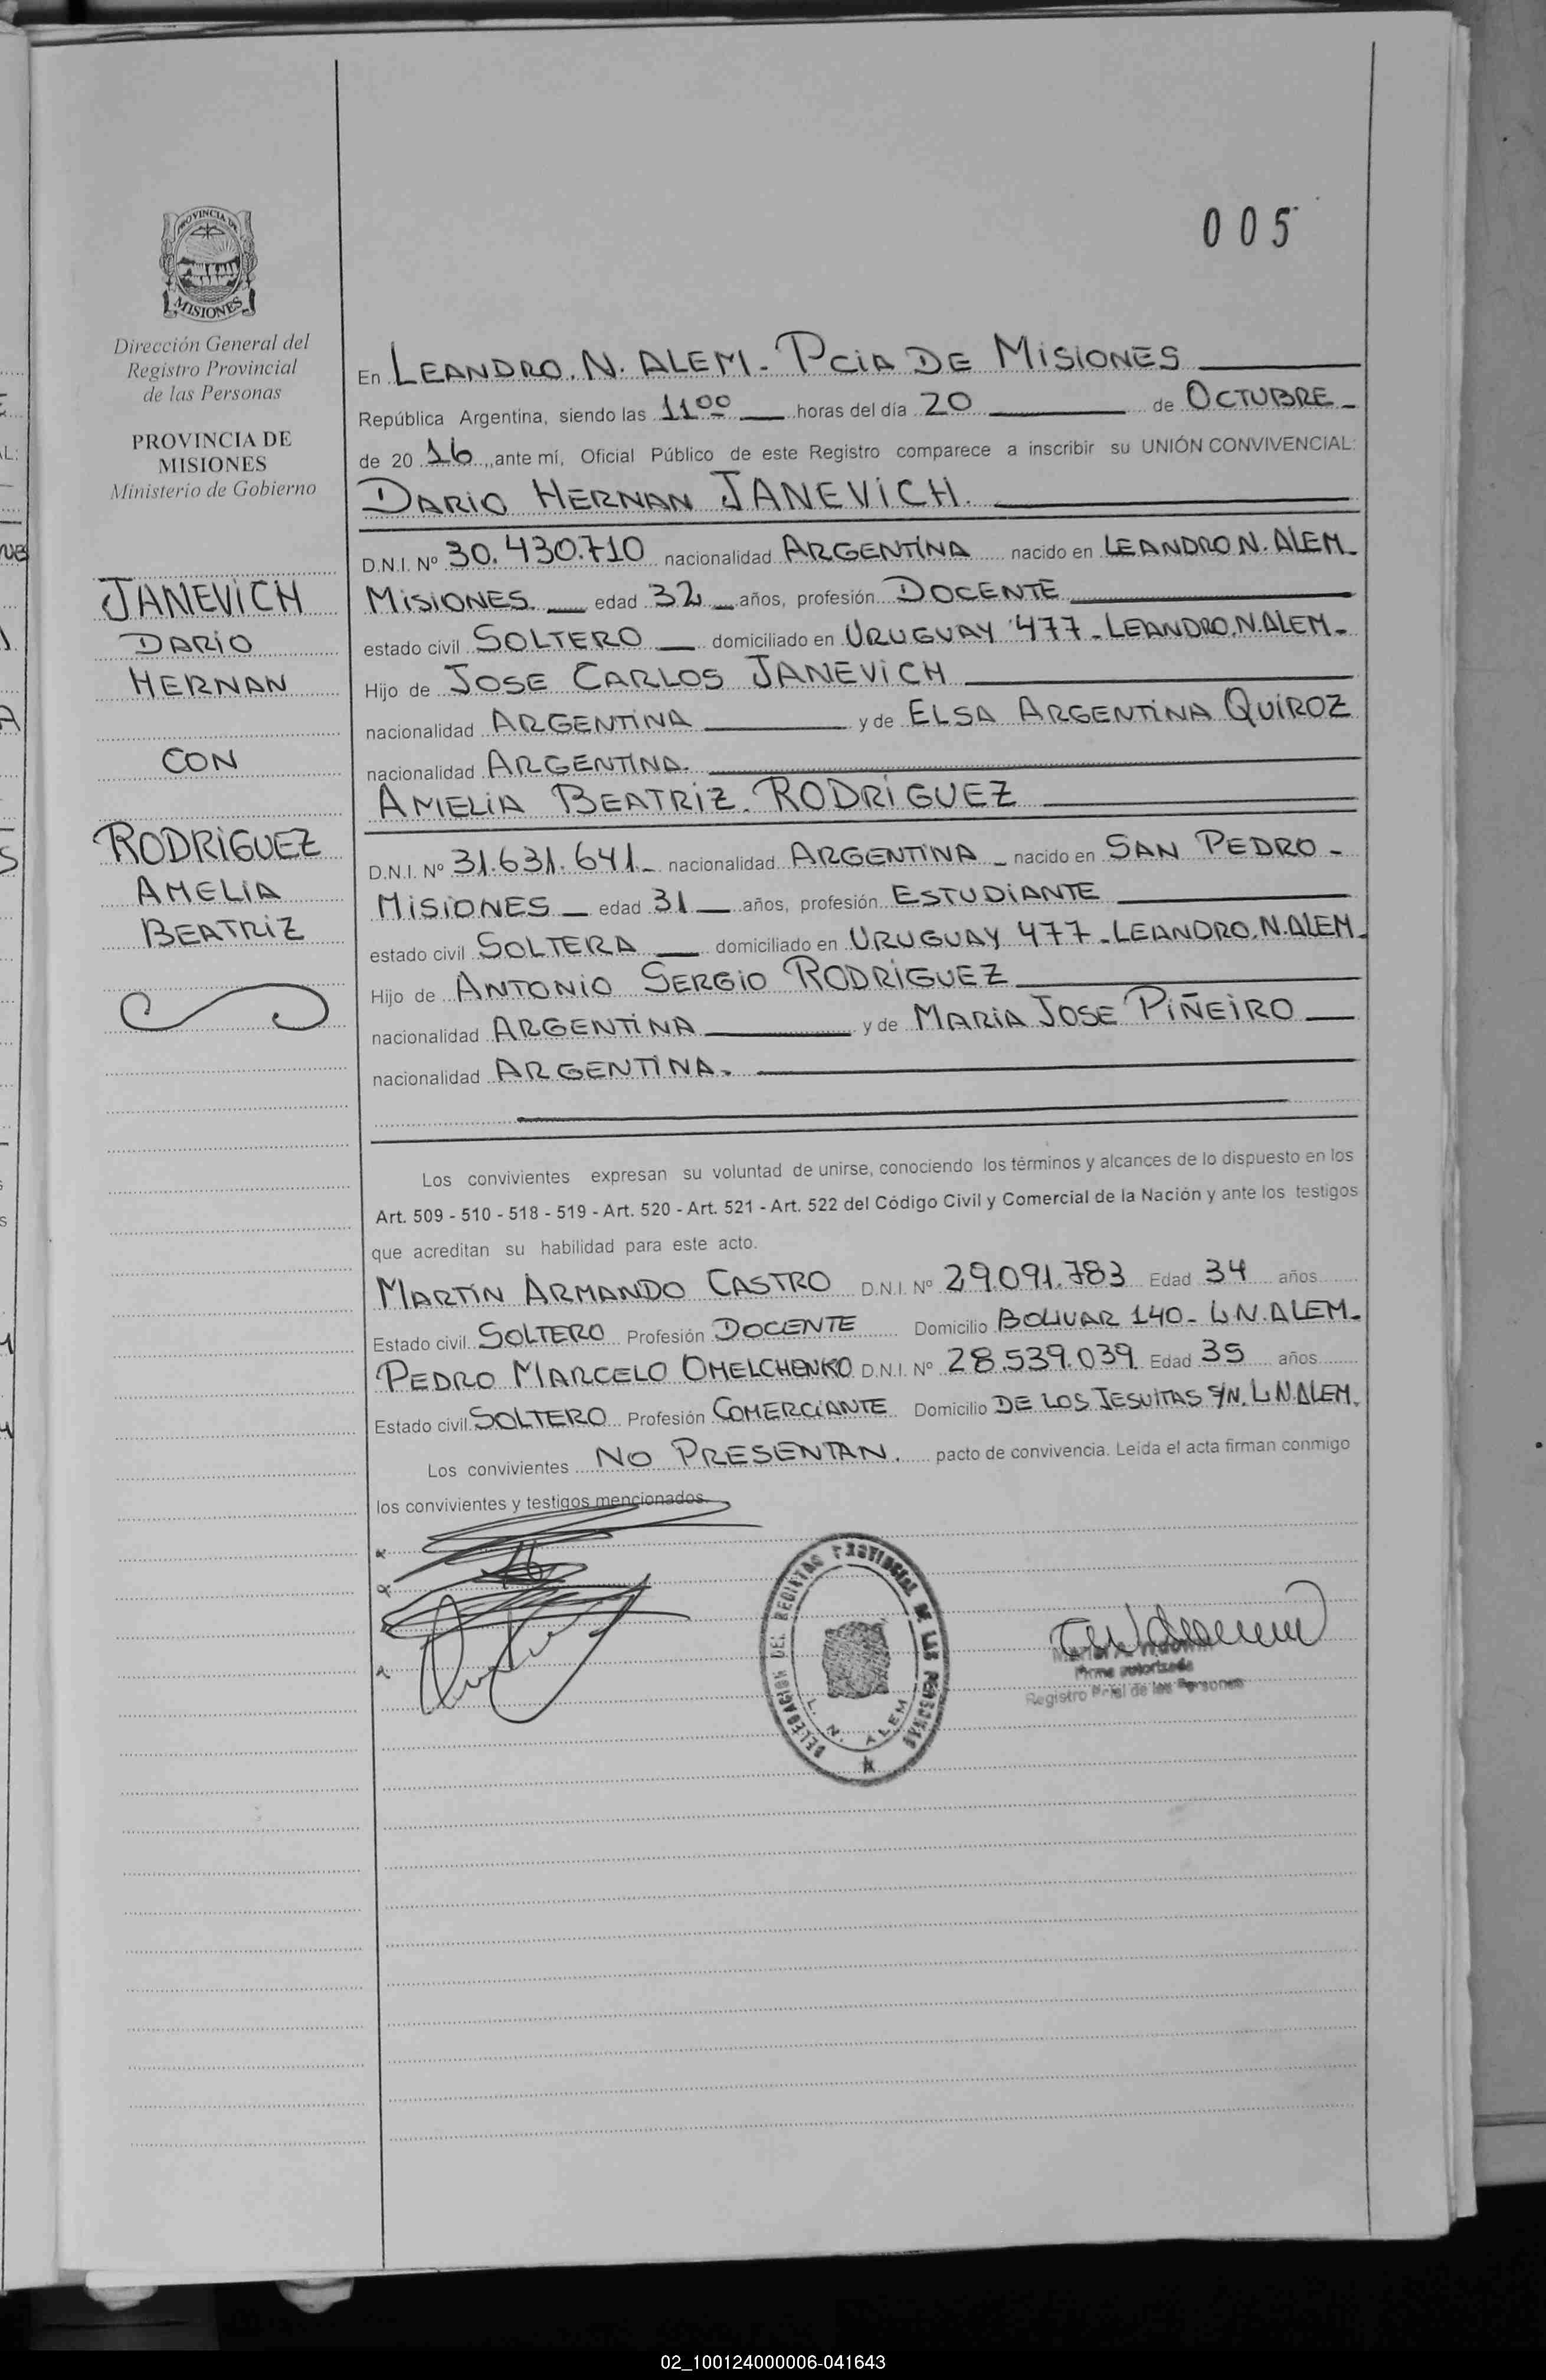 005
PROVINCIA DE
MISIONES
Dirección General del
Registro Provincial
de las Personas
PROVINCIA DE
MISIONES
Ministerio de Gobierno
JANEVICH
DARIO
HERNAN
CON
RODRIGUEZ
AMELIA
BEATRIZ
En LEANDRO.N. ALEM- PCIA DE MISIONES
República Argentina, siendo las 11 00 horas del día 20 de OCTUBRE
de 20 16, ante mí, Oficial Público de este Registro comparece a inscribir su UNIÓN CONVIVENCIAL:
DARIO HERNAN JANEVICH.
D.N.I. Nº 30.430.710 nacionalidad ARGENTINA nacido en LEANDRO N. ALEM-
MISIONES edad 32 años, profesión DOCENTE
estado civil SOLTERO domiciliado en URUGUAY 477-LEANDRO.N.ALEM-
Hijo de JOSE CARLOS JANEVICH
nacionalidad ARGENTINA y de ELSA ARGENTINA QUIROZ
nacionalidad ARGENTINA.
AMELIA BEATRIZ. RODRIGUEZ
D.N.I. Nº 31.631.641- nacionalidad ARGENTINA - nacido en SAN PEDRO -
MISIONES edad 31 años, profesión ESTUDIANTE
estado civil SOLTERA domiciliado en URUGUAY 477-LEANDRO.N.ALEM-
Hijo de ANTONIO SERGIO RODRIGUEZ
nacionalidad ARGENTINA y de MARIA JOSE PIÑEIRO
nacionalidad ARGENTINA.
Los convivientes expresan su voluntad de unirse, conociendo los términos y alcances de lo dispuesto en los
Art. 509 - 510 - 518 - 519 - Art. 520 - Art. 521 - Art. 522 del Código Civil y Comercial de la Nación y ante los testigos
que acreditan su habilidad para este acto.
MARTIN ARMANDO CASTRO D.N.I. Nº 29.091.783 Edad 34 años
Estado civil SOLTERO Profesión DOCENTE Domicilio BOLIVAR 140- L.N.ALEM-
PEDRO MARCELO OMELCHENKO D.N.I. Nº 28.539.039 Edad 35 años
Estado civil SOLTERO Profesión COMERCIANTE Domicilio DE LOS JESUITAS S/N. L.N.ALEM.
Los convivientes NO PRESENTAN. pacto de convivencia. Leída el acta firman conmigo
los convivientes y testigos mencionados.
DELEGACION DEL REGISTRO PROVINCIAL DE LAS PERSONAS
L. N. ALEM
Firma autorizada
Registro Pcial de las Personas
02_100124000006-041643